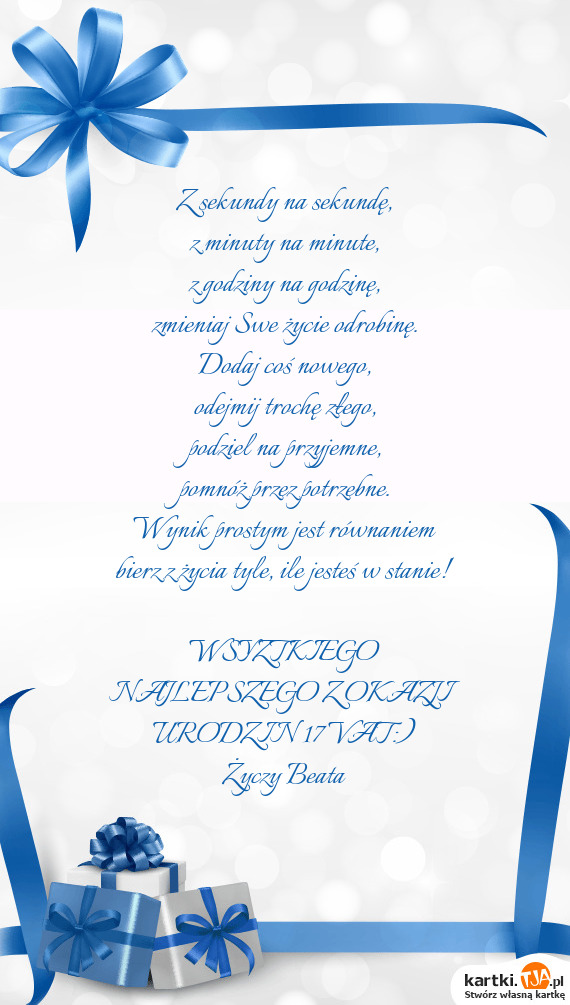 Z sekundy na sekundę,
z minuty na minute,
z godziny na godzinę,
zmieniaj Swe życie odrobinę.
Dodaj coś nowego,
odejmij trochę złego,
podziel na przyjemne,
pomnóż przez potrzebne.
Wynik prostym jest równaniem
bierz z życia tyle, ile jesteś w stanie!
WSYZTKIEGO
NAJLEPSZEGO Z OKAZJI
URODZIN 17 VAT:)
Życzy Beata
kartki.TJA.pl
Stwórz własną kartkę